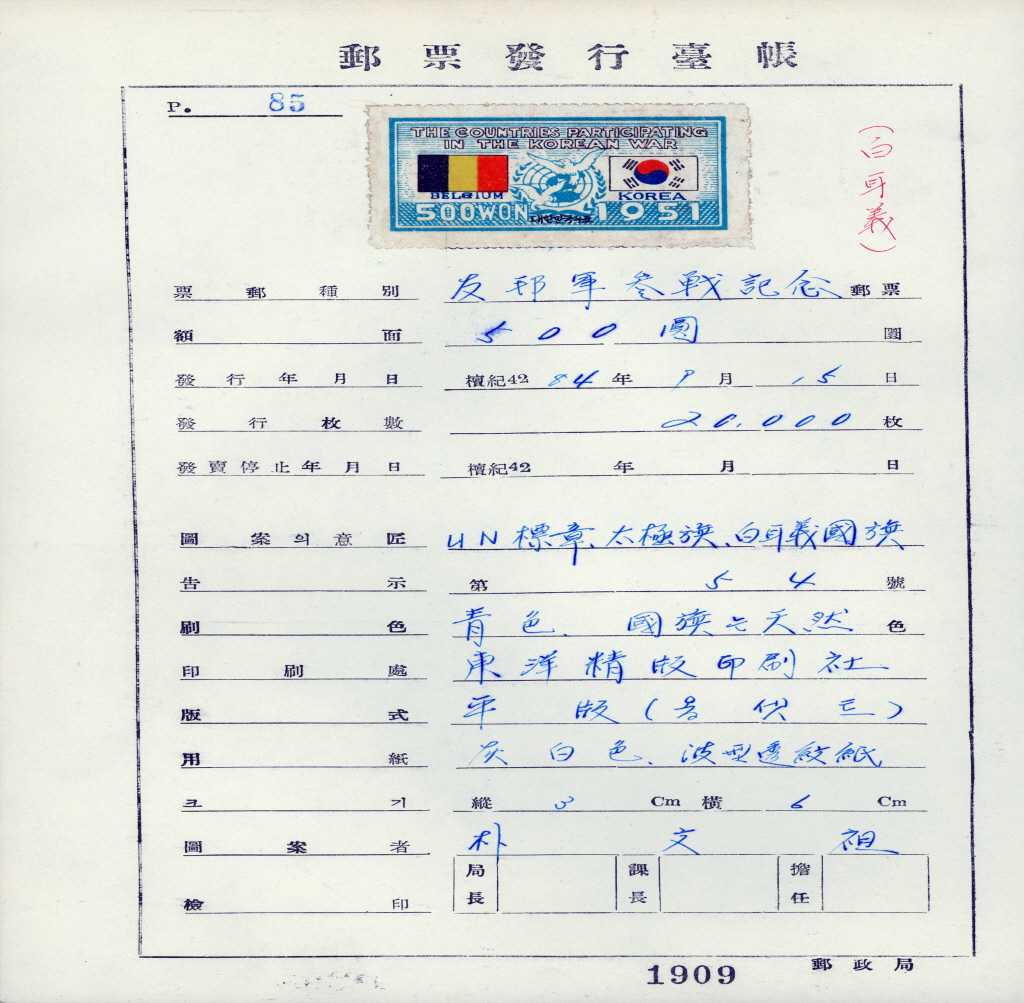 郵票發行臺帳
P. 85
THE COUNTRIES PARTICIPATING
IN THE KOREAN WAR
BELGIUM KOREA
500WON 1951
(白耳義)
票郵種別 友邦軍參戰記念郵票
額面 500圓 圜
發行年月日 檀紀4284年9月15日
發行枚數 20,000枚
發賣停止年月日 檀紀42 年 月 日
圖案의意匠 UN標章、太極旗、白耳義國旗
告示 第54號
刷色 青色. 國旗는天然色
印刷處 東洋精版印刷社
版式 平版
用紙 灰白色、波型透紋紙
크기 縱 3 Cm 橫 6 Cm
圖案者 朴文祖
檢印 局長 課長 擔任
1909 郵政局